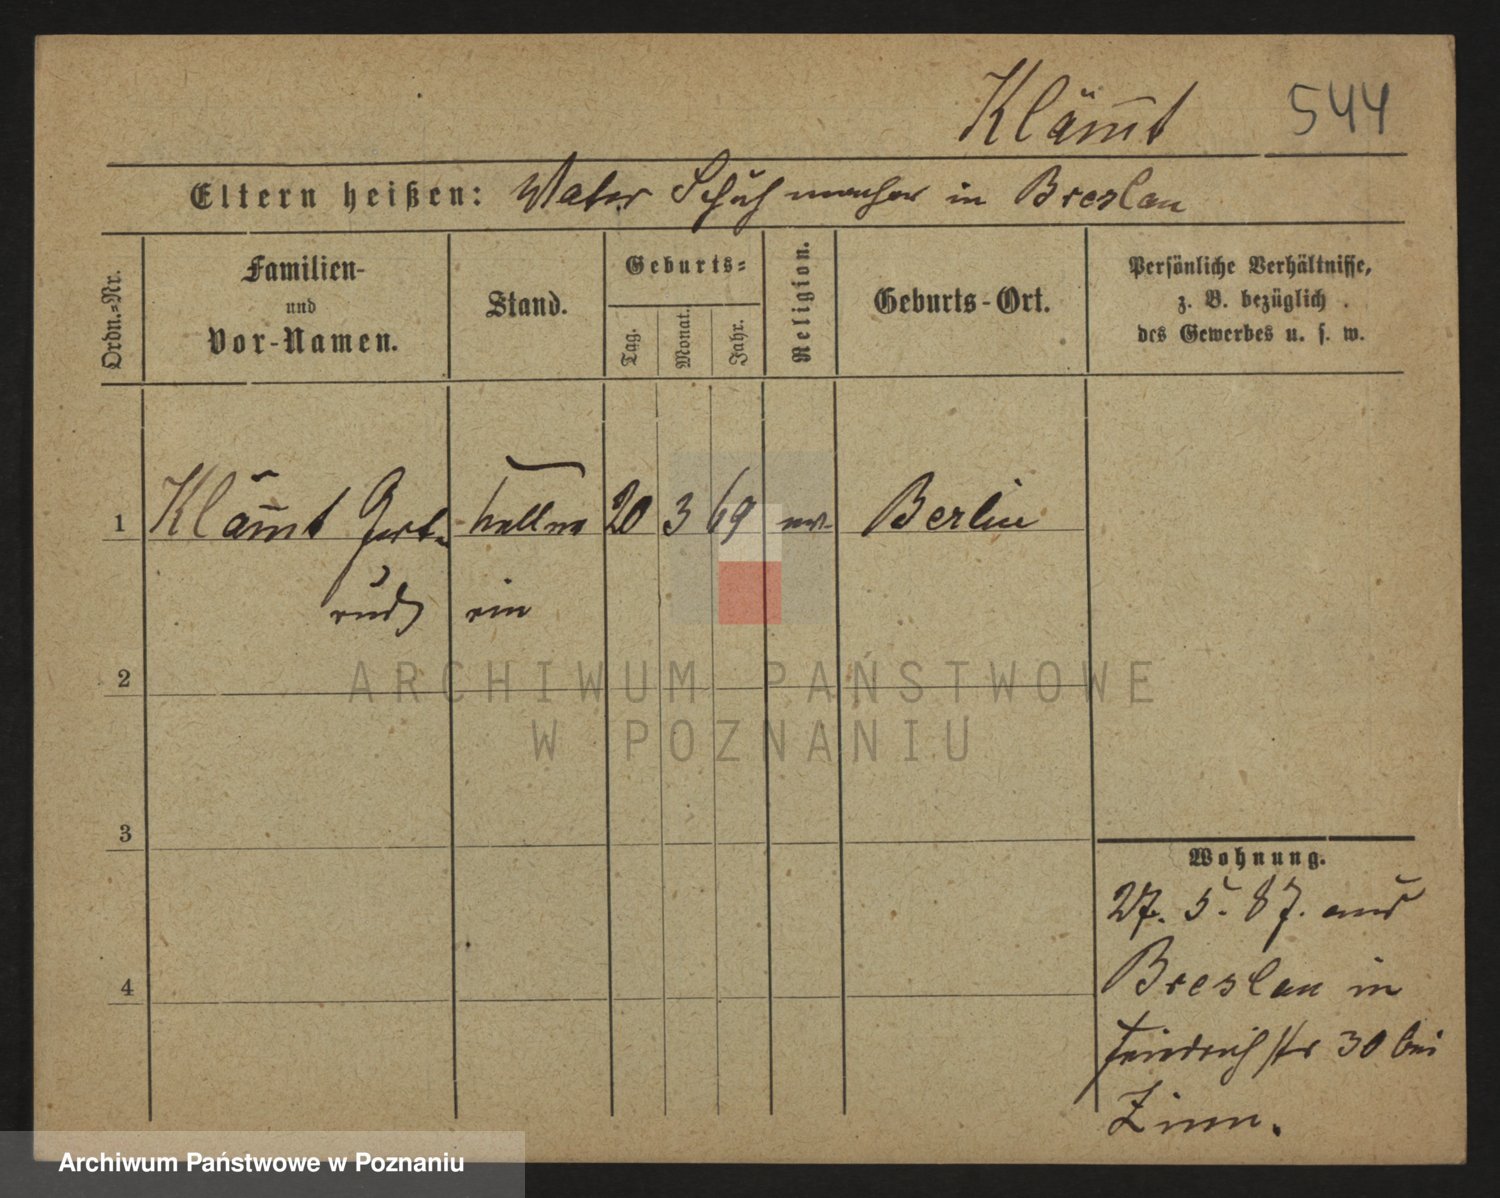 Klämt 544
Eltern heißen: Vater Schuhmacher in Breslau
Ordn.=Nr.
Familien-
und
Vor-Namen.
Stand.
Geburts=
Tag.
Monat.
Jahr.
Religion.
Geburts-Ort.
Persönliche Verhältnisse,
z. B. bezüglich
des Gewerbes u. s. w.
1 Klämt Gert- kellne 20 3 69 ev. Berlin
rud rin
2
ARCHIWUM PAŃSTWOWE
W POZNANIU
3
Wohnung.
27. 5. 87. aus
4
Breslau in
Friedrichstr 30 bei
Zinn.
Archiwum Państwowe w Poznaniu